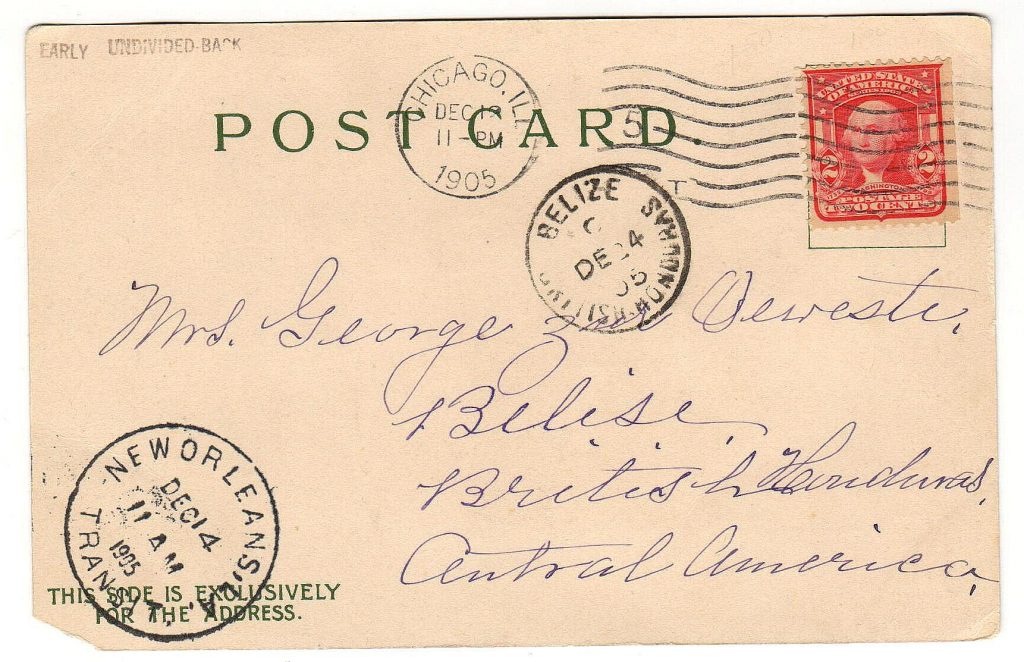 EARLY UNDIVIDED-BACK
POST CARD.
CHICAGO, ILL
DEC 13
11-PM
1905
5
UNITED STATES
OF AMERICA
2 2
POSTAGE
TWO CENTS
BELIZE
DE 24
05
BRITISH HONDURAS
Mrs. George
Belise
British Honduras,
Central America,
NEW ORLEANS, LA.
DEC 14
11 AM
1905
TRANSIT.
THIS SIDE IS EXCLUSIVELY
FOR THE ADDRESS.